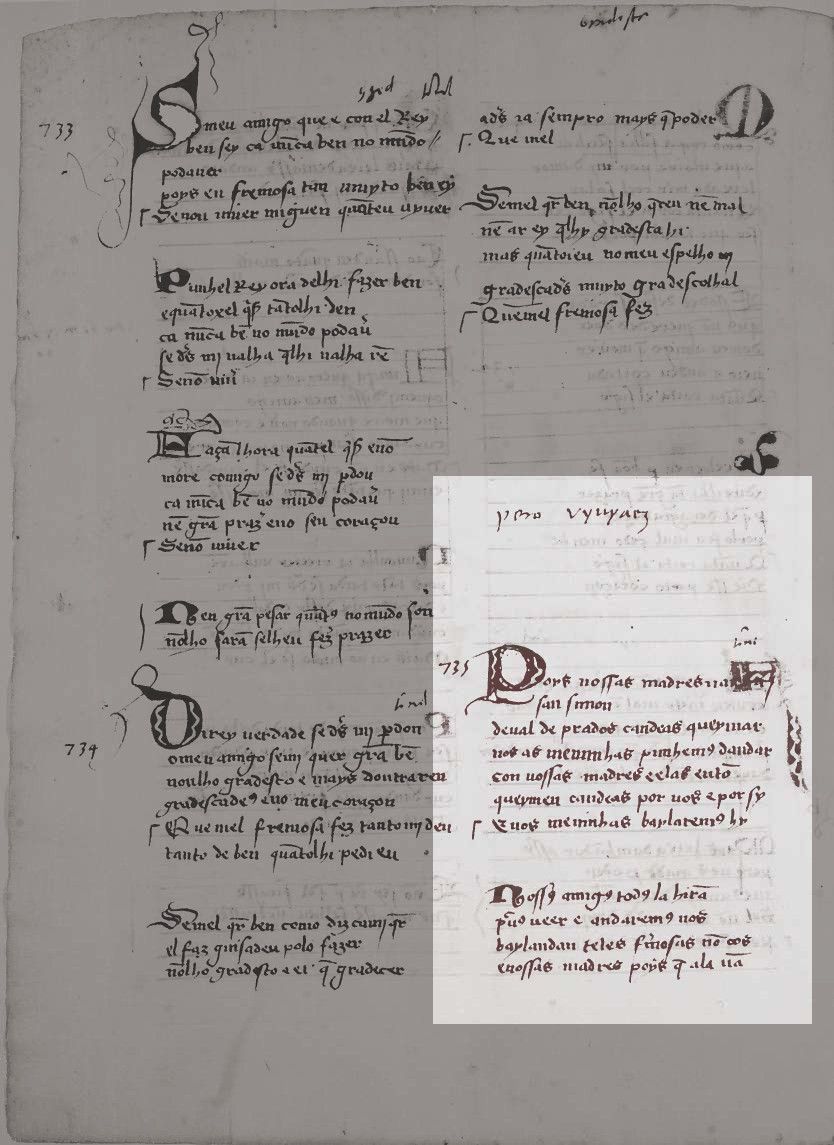 733
S meu amigo que e con el Rey
ben sey ca nũca ben no mũdo
podauer
poys eu fremosa tam muyto ben ey
Senon uiuer migu en quãteu uyuer
Punhel Rey ora delhi fazer ben
ca nũca bẽ no mũdo podau̾
se d̃s mi valha q̃lhi ualha rẽ
Senõ uiu̾
more comigo se d̃s mi ꝑdou
ca nũca bẽ uo mũdo podau̾
nẽ grã praz̾ eno seu coraçon
Senõ uiuer
Nen grã pesar quãtꝰ no mũdo son
nõlho farã selheu fez̾ prazer
734
Direy uerdade se d̃s mi ꝑdon
o meu amigo semi quer grã bẽ
nonlho gradesco e mays doutra ren
gradescadeꝰ eno meu coraçon
Que mel fremosa fez tanto mi deu
tanto de ben quãtolhi pedi eu
Semel q̃r ben como diz cami q̃r
el faz guisadeu polo fazer
nõlho gradesco e ei q̃ gradecer
ad̃s ia sempro mays q̃ poder
Que mel
Semel q̃r ben nõlho q̃reu nẽ mal
nẽ ar ey q̃lhy gradesca hi
mas quãtoieu no meu espelho ui
gradescad̃s muyto gradescolhal
Quemel fremosa fez̾
pero vyuyaez
735
Poys nossas madres uam a
san simon
deual de prados candeas queymar
nos as meninhas punhemꝰ dandar
con nossas madres e elas entõ
queymen candeas por nos e por sy
E nos meninhas baylaremꝰ hy
Nossꝰ amigꝰ todꝰ la hirã
por nꝰ ueer e andaremꝰ nos
baylandan teles fremosas nõ cos
e nossas madres poys q̃ ala uã